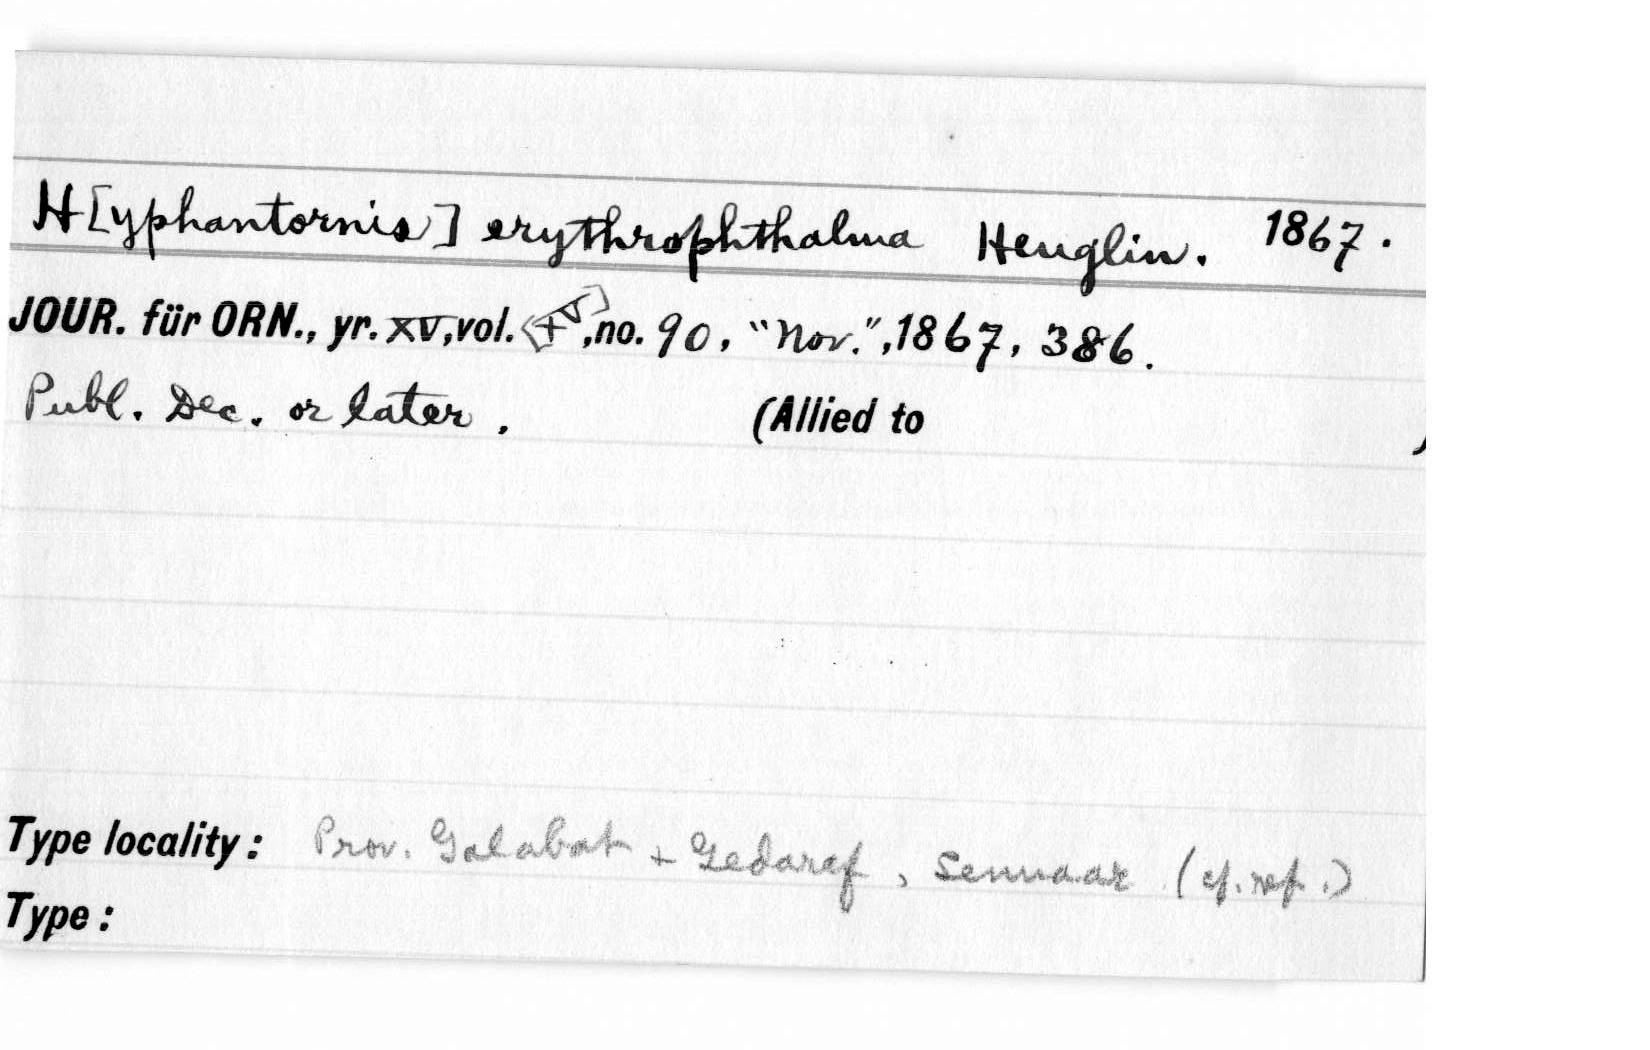 H[yphantornis] erythrophthalma Heuglin. 1867.
JOUR. für ORN., yr. XV, vol. <XV>, no. 90, "Nov.", 1867, 386.
Publ. Dec. or later. (Allied to )
Type locality: Prov. Galabat + Gedaref, Sennaar (cf. ref.)
Type: